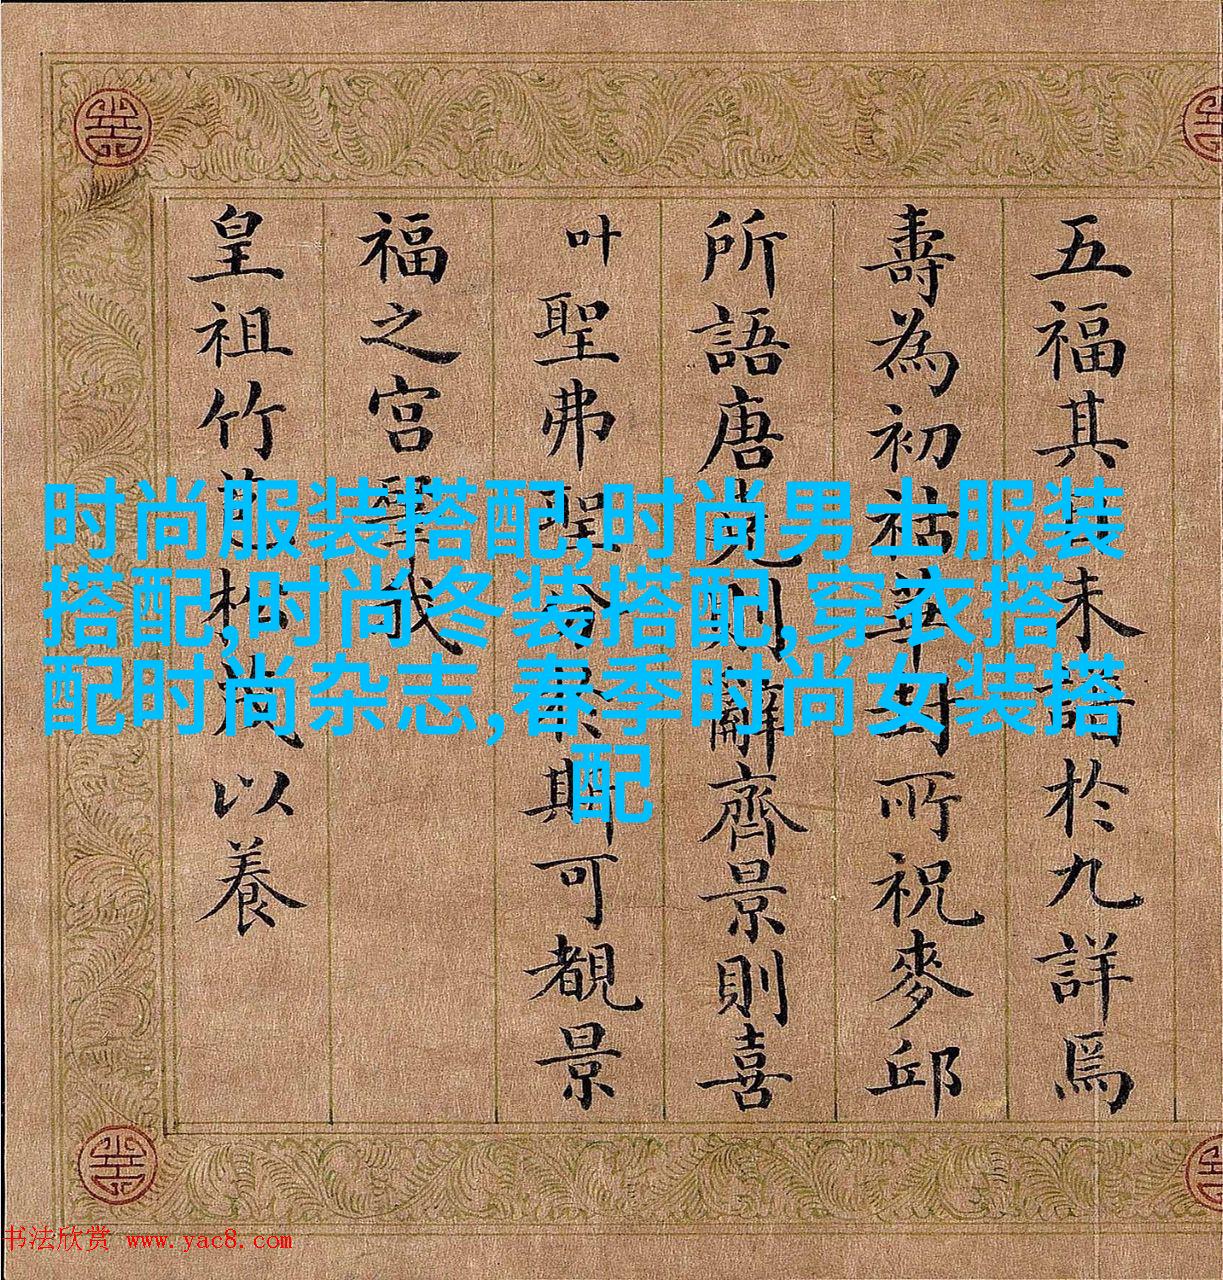 五福其未於九詳焉
壽為初祜華封所祝麥邱
所語唐堯則辭齊景則喜
叶聖弗聖合斯可覩景
福之宮肇哉
皇祖竹苞松茂以養
时尚服装搭配,时尚男士服装
搭配,时尚冬装搭配,穿衣搭
配时尚杂志,春季时尚女装搭
配
书法欣赏 www.yac8.com